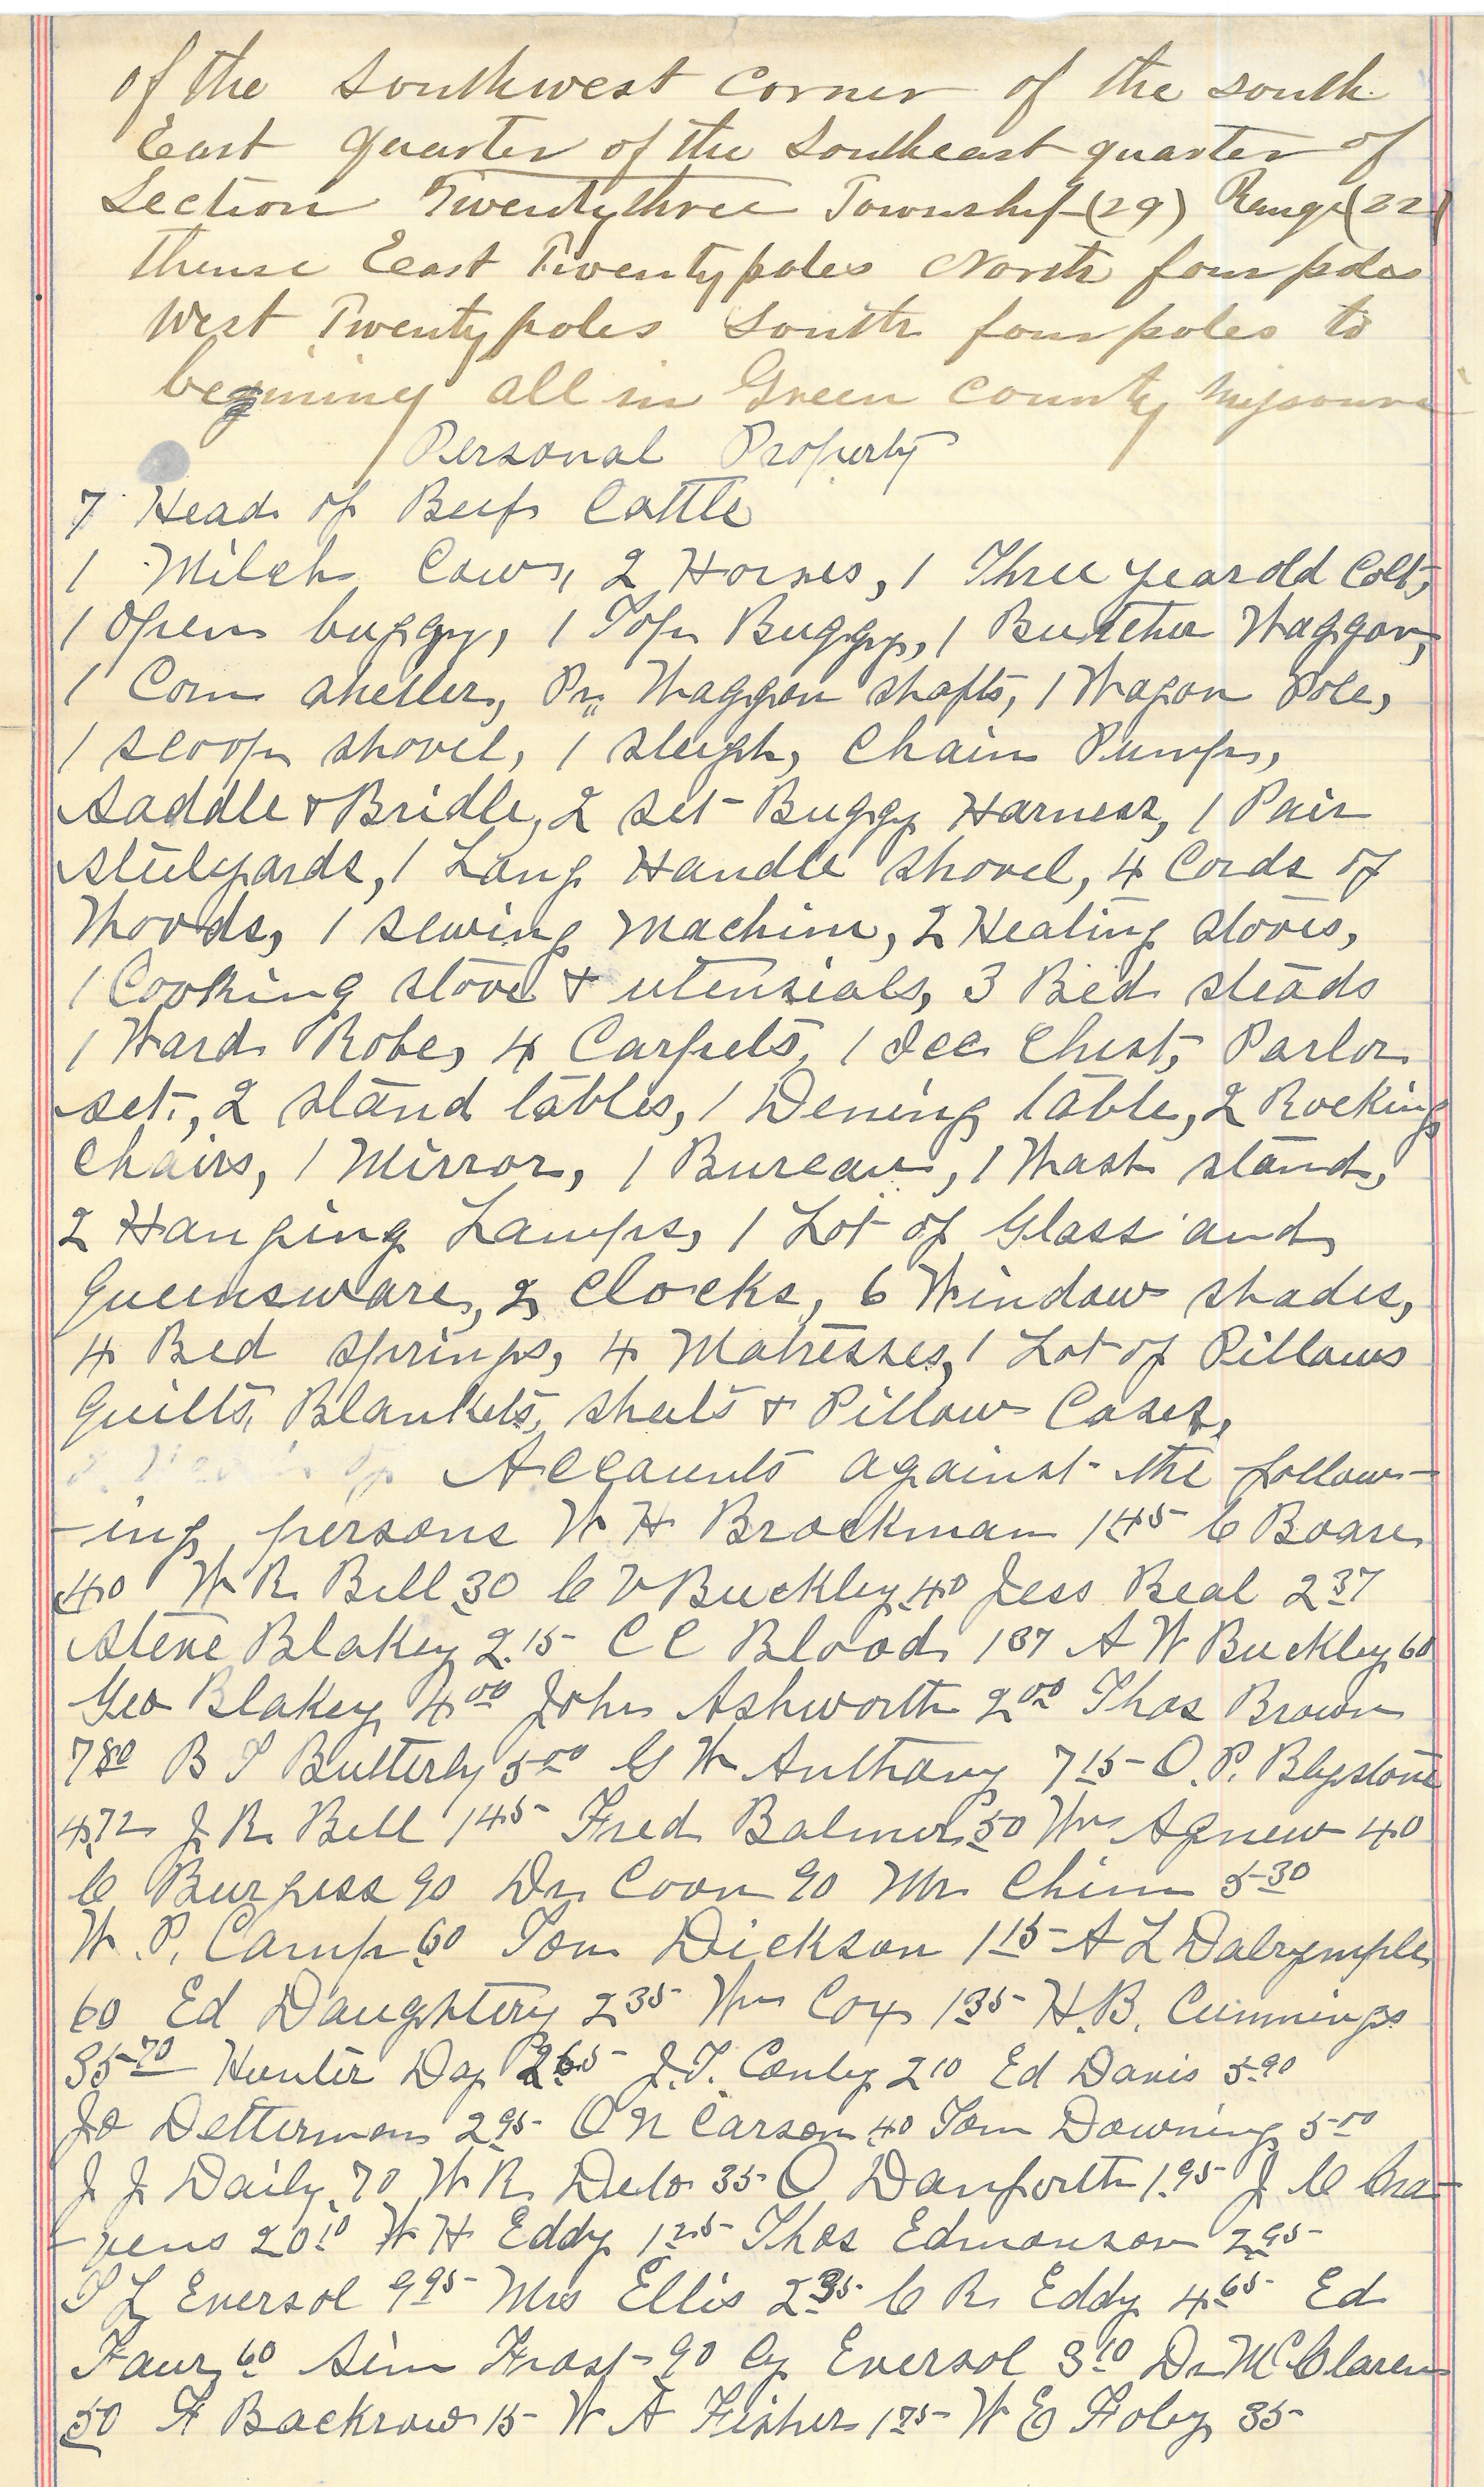 of the Southwest corner of the south
East quarter of the Southeast quarter of
Section Twentythree Township (29) Range (22)
thense East Twenty poles North four poles
West Twenty poles South four poles to
begining all in Green county Missouri
Personal Property
7 Head of Beef Cattle
1 Milch Cow, 2 Horses, 1 Three year old Colt,
1 Open buggy, 1 Top Buggy, 1 Butcher Waggon,
1 Corn sheller, Pr. Waggon shafts, 1 Wagon Pole,
1 scoop shovel, 1 sleigh, Chain Pump,
Saddle & Bridle, 2 set Buggy Harness, 1 Pair
steelyards, 1 Long Handle shovel, 4 Cords of
Woods, 1 sewing machine, 2 Heating stoves,
1 Cooking stove & utensials, 3 Bed steads
1 Ward Robe, 4 Carpets, 1 Ice Chest, Parlor
set, 2 stand tables, 1 Dening table, 2 Rocking
Chairs, 1 Mirror, 1 Bureau, 1 Wash stand,
2 Hanging Lamps, 1 Lot of Glass and
Queensware, 2 Clocks, 6 Window shades,
4 Bed springs, 4 Matresses, 1 Lot of Pillows
Quilts, Blankets, sheets & Pillow Cases,
Accounts against the follow-
-ing persons W H Brockman 1 45 C Boare
40 W R Bell 30 C V Buckley 40 Jess Beal 2 37
Steve Blakey 2.15 C C Blood 1 37 A W Buckley 60
Geo Blakey 4 00 John Ashworth 2 00 Thos Brown
7 80 B T Butterly 5 00 G W Anthony 7 15 O. P. Blystone
4.72 J R Bell 1 45 Fred Balmer 50 Wm Agnew 40
C Burgess 90 Dr Coon 90 Mr Chinn 5 30
W. P. Camp 60 Tom Dickson 1 15 A L Dalrymple
60 Ed Daughtery 2 35 Wm Cox 1 35 H. B. Cummings
35 70 Hunter Day 2 65 J. T. Conley 2 10 Ed Davis 5.90
Jo Detterman 2 95 O N Carson 40 Tom Downing 5 00
J J Daily 70 W R Delo 35 O Danforth 1.95 J C Cra-
-vens 20 10 W H Eddy 1 25 Thos Edmonson 2 95
S L Eversol 9 95 Mrs Ellis 2 35 C R Eddy 4 65 Ed
Faur 60 Sim Frost 90 Cy Eversol 3 10 Dr McClaren
50 F Backrow 15 W A Fisher 1 75 W E Foley 35